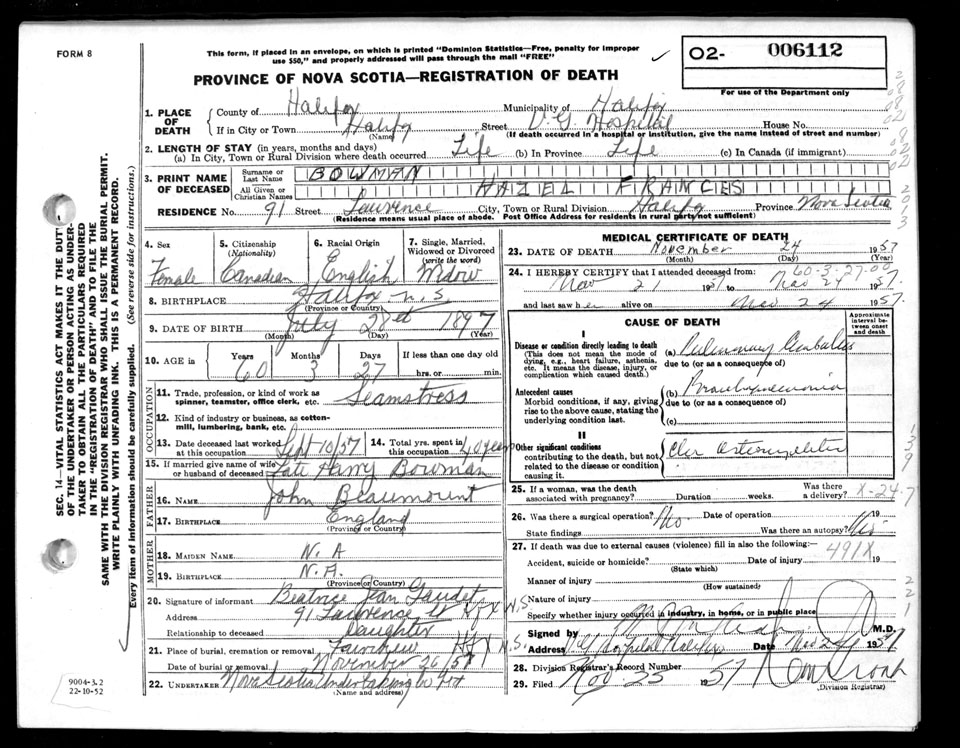 FORM 8
This form, if placed in an envelope, on which is printed "Dominion Statistics—Free, penalty for improper
use $50," and properly addressed will pass through the mail "FREE"
O2- 006112
For use of the Department only
PROVINCE OF NOVA SCOTIA—REGISTRATION OF DEATH
SEC. 14—VITAL STATISTICS ACT MAKES IT THE DUTY
OF THE UNDERTAKER OR PERSON ACTING AS UNDER-
TAKER TO OBTAIN ALL THE PARTICULARS REQUIRED
IN THE "REGISTRATION OF DEATH" AND TO FILE THE
SAME WITH THE DIVISION REGISTRAR WHO SHALL ISSUE THE BURIAL PERMIT.
WRITE PLAINLY WITH UNFADING INK. THIS IS A PERMANENT RECORD.
Every item of Information should be carefully supplied. (See reverse side for instructions.)
1. PLACE OF DEATH
County of Halifax Municipality of Halifax
If in City or Town Halifax Street V.G. Hospital House No.
(Name) (If death occurred in a hospital or institution, give the name instead of street and number)
2. LENGTH OF STAY (in years, months and days)
(a) In City, Town or Rural Division where death occurred Life (b) In Province Life (c) In Canada (if immigrant)
3. PRINT NAME OF DECEASED
Surname or Last Name BOWMAN
All Given or Christian Names HAZEL FRANCES
RESIDENCE No. 91 Street Lawrence City, Town or Rural Division Halifax Province Nova Scotia
(Residence means usual place of abode. Post Office Address for residents in rural parts not sufficient)
4. Sex Female
5. Citizenship (Nationality) Canadian
6. Racial Origin English
7. Single, Married, Widowed or Divorced (write the word) Widow
8. BIRTHPLACE Halifax N.S
(Province or Country)
9. DATE OF BIRTH July 28 1897
(Month) (Day) (Year)
10. AGE in Years 60 Months 3 Days 27 If less than one day old hrs. or min.
OCCUPATION
11. Trade, profession, or kind of work as
spinner, teamster, office clerk, etc. Seamstress
12. Kind of industry or business, as cotton-
mill, lumbering, bank, etc.
13. Date deceased last worked at this occupation Sept 10/57
14. Total yrs. spent in this occupation 40 years
15. If married give name of wife or husband of deceased Late Harry Bowman
FATHER
16. Name John Beaumount
17. Birthplace England
(Province or Country)
MOTHER
18. Maiden Name N.A
19. Birthplace N.A.
(Province or Country)
20. Signature of informant Beatrice Jean Gaudet
Address 91 Lawrence St Hfx N.S.
Relationship to deceased Daughter
21. Place of burial, cremation or removal Fairview Hfx N.S.
Date of burial or removal November 26/57
22. UNDERTAKER Nova Scotia Undertaking Co Hfx
(Name and address)
9004-3.2
22-10-52
MEDICAL CERTIFICATE OF DEATH
23. DATE OF DEATH November 24 1957
(Month) (Day) (Year)
60-3-27-00
24. I HEREBY CERTIFY that I attended deceased from:
Nov 21 1957 to Nov 24 1957.
and last saw her alive on Nov 24 1957
CAUSE OF DEATH
Approximate interval between onset and death
I
Disease or condition directly leading to death
(This does not mean the mode of
dying, e.g., heart failure, asthenia,
etc. It means the disease, injury, or
complication which caused death.)
(a) Pulmonary Embolus
due to (or as a consequence of)
Antecedent causes
Morbid conditions, if any, giving
rise to the above cause, stating the
underlying condition last.
(b) Bronchopneumonia
due to (or as a consequence of)
(c)
II
Other significant conditions
contributing to the death, but not
related to the disease or condition
causing it.
25. If a woman, was the death associated with pregnancy? Duration weeks. Was there a delivery? X-24-7
26. Was there a surgical operation? No Date of operation 19
State findings Was there an autopsy?
27. If death was due to external causes (violence) fill in also the following:—
Accident, suicide or homicide? Date of injury 19
491X
(State which)
Manner of injury
(How sustained)
Nature of injury
Specify whether injury occurred in industry, in home, or in public place
Signed by M.D.
Address V.G. Hospital Halifax Date Nov 24 1957
28. Division Registrar's Record Number
29. Filed Nov. 25 1957
(Division Registrar)